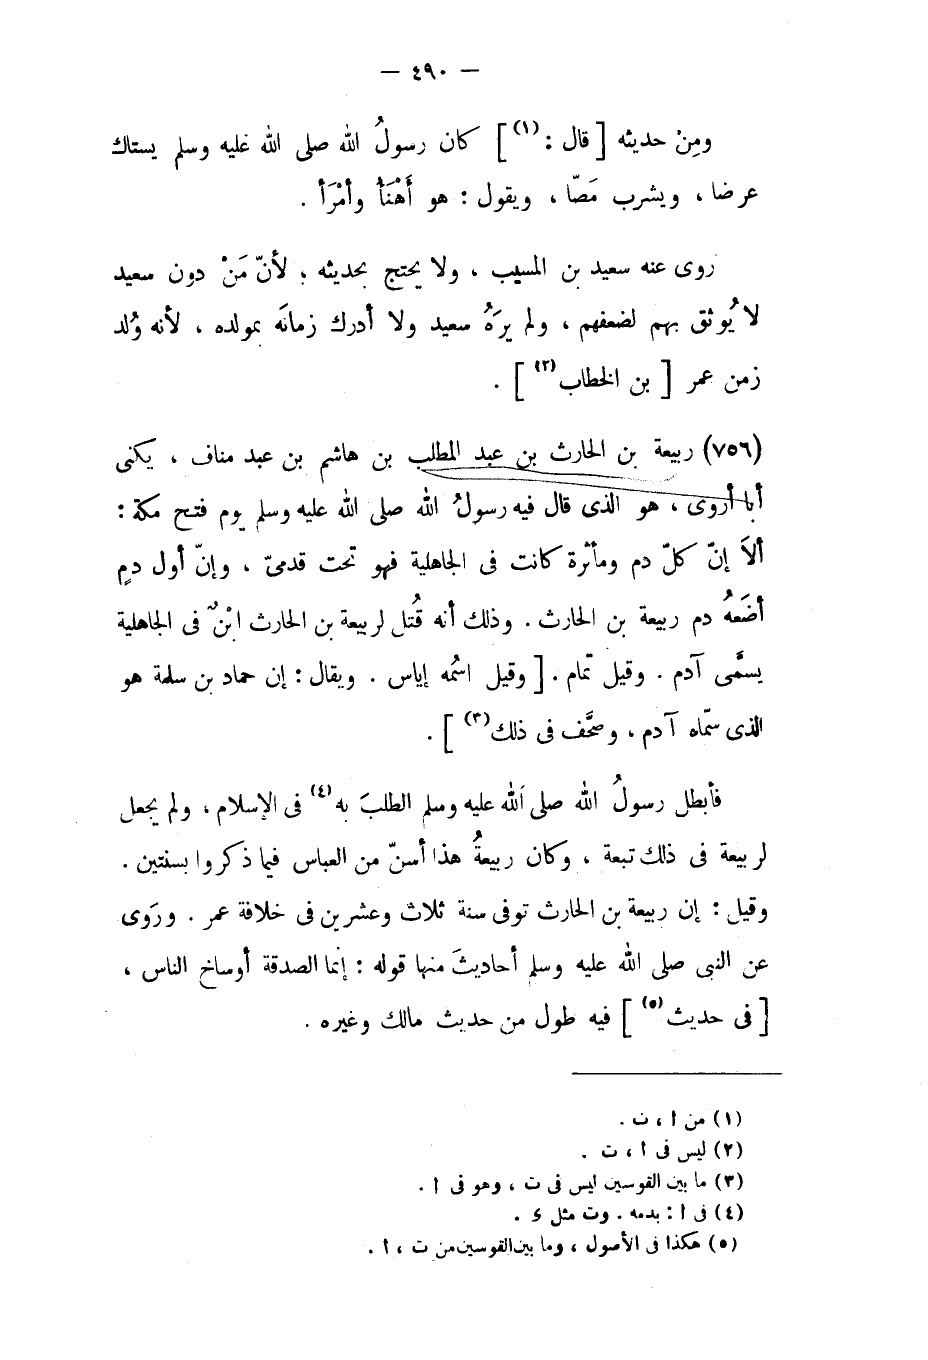 — ٤٩٠ —
ومِنْ حديثه [ قال :(١) ] كان رسولُ الله صلى الله عليه وسلم يستاك
عرضا ، ويشرب مَصّا ، ويقول : هو أَهْنَأُ وأَمْرَأ .
روى عنه سعيد بن المسيب ، ولا يحتج بحديثه ؛ لأنّ مَنْ دون سعيد
لا يُوثق بهم لضعفهم ، ولم يَرَهُ سعيد ولا أدرك زمانَه بمولده ، لأنه وُلد
زمن عمر [ بن الخطاب(٢) ] .
(٧٥٦) ربيعة بن الحارث بن عبد المطلب بن هاشم بن عبد مناف ، يكنى
أبا أروى ، هو الذى قال فيه رسولُ الله صلى الله عليه وسلم يوم فتح مكة :
ألاَ إنّ كلّ دم ومأثرة كانت فى الجاهلية فهو تحت قدمىّ ، وإنّ أول دمٍ
أضَعهُ دم ربيعة بن الحارث . وذلك أنه قُتل لربيعة بن الحارث ابْنٌ فى الجاهلية
يسمَّى آدم . وقيل تمام . [ وقيل اسْمُه إياس . ويقال : إن حماد بن سلمة هو
الذى سمّاه آدم ، وصحَّف فى ذلك(٣) ] .
فأبطل رسولُ الله صلى الله عليه وسلم الطلبَ به(٤) فى الإسلام ، ولم يجعل
لربيعة فى ذلك تبعة ، وكان ربيعةُ هذا أسنّ من العباس فيما ذكروا بسنتين .
وقيل : إن ربيعة بن الحارث توفى سنة ثلاث وعشرين فى خلافة عمر . ورَوى
عن النبى صلى الله عليه وسلم أحاديثَ منها قوله : إنما الصدقة أوساخ الناس ،
[ فى حديث(٥) ] فيه طول من حديث مالك وغيره .
(١) من ا ، ت .
(٢) ليس فى ا ، ت .
(٣) ما بين القوسين ليس فى ت ، وهو فى ا .
(٤) فى ا : بدمه . وت مثل ء .
(٥) هكذا فى الأصول ، وما بين القوسين من ت ، ا .